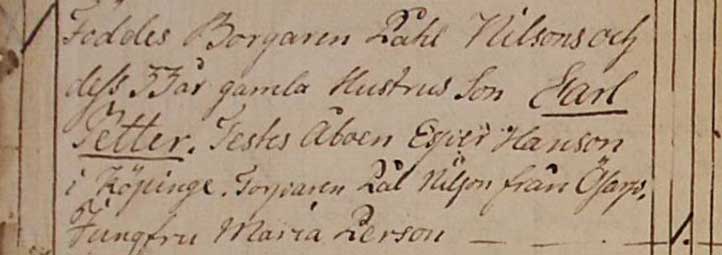 Föddes Borgaren Påhl Nilsons och
dess 33 år gamla Hustrus Son Carl
Petter. Testes Åboen Esper Hanson
i Köpinge. Torparen Pål Nilson från Ösarp.
Jungfru Maria Person — — —